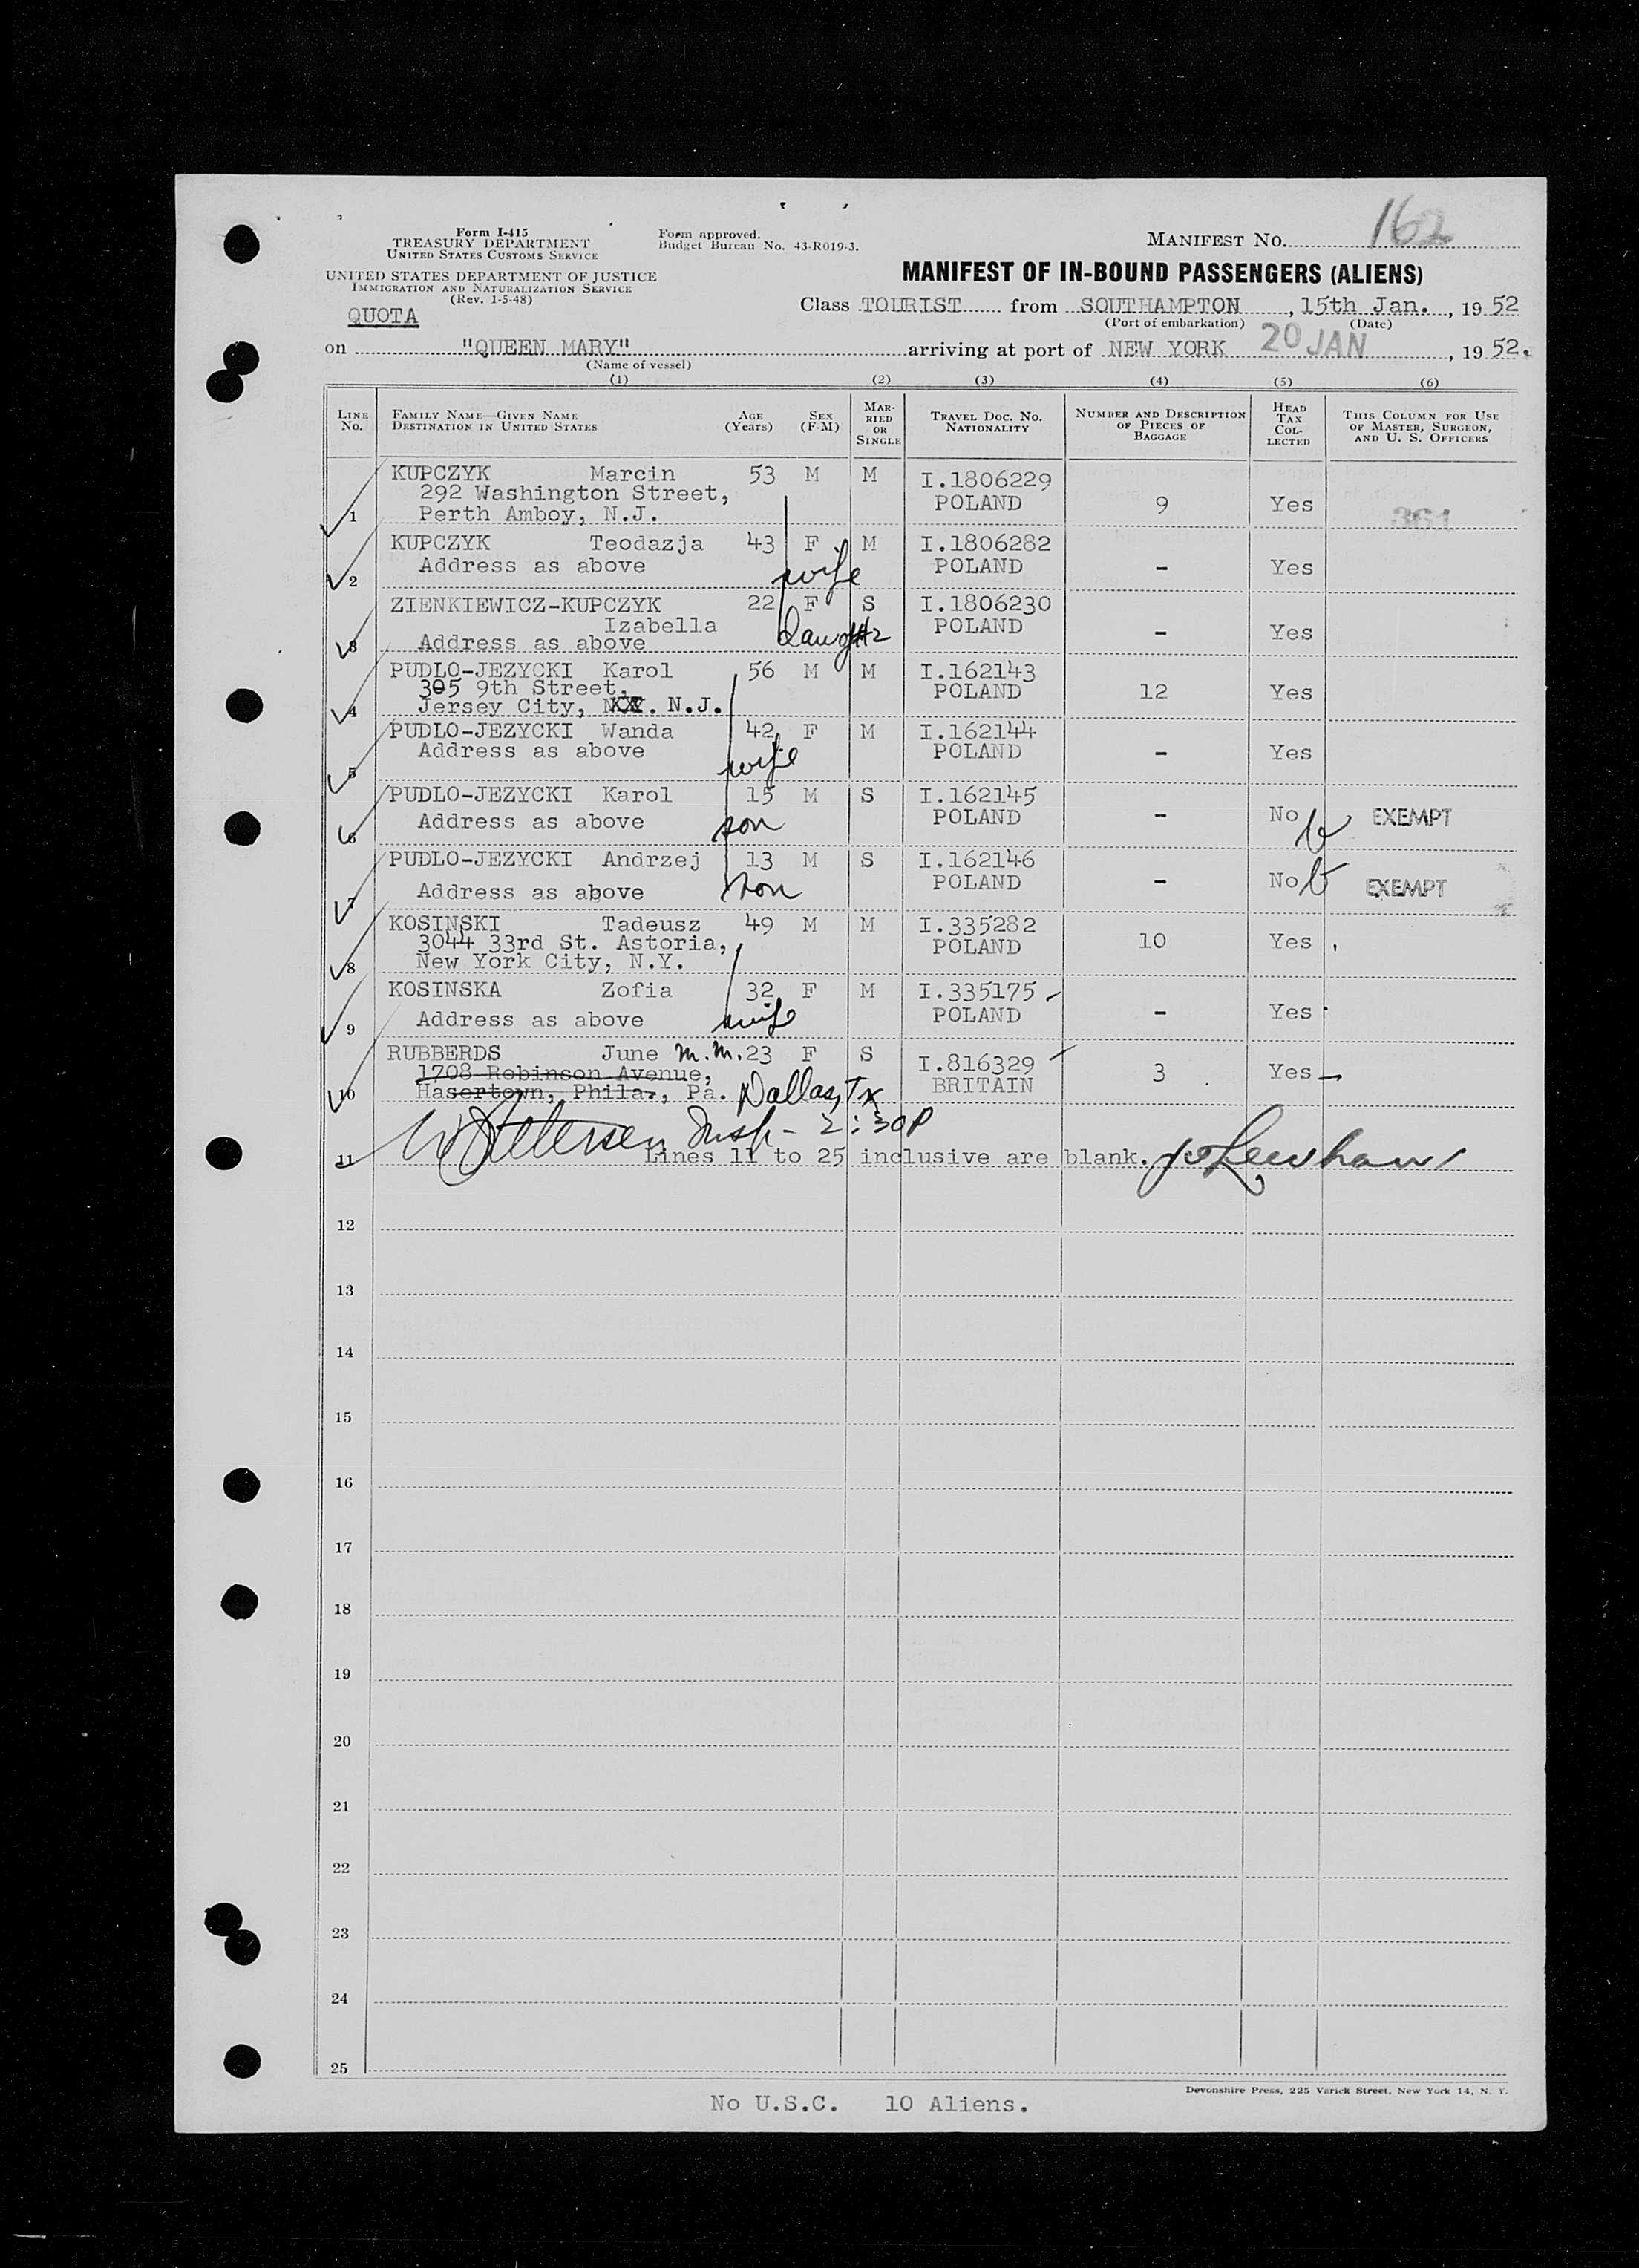 162
Form I-415
TREASURY DEPARTMENT
UNITED STATES CUSTOMS SERVICE
UNITED STATES DEPARTMENT OF JUSTICE
IMMIGRATION AND NATURALIZATION SERVICE
(Rev. 1-5-48)
QUOTA
Form approved.
Budget Bureau No. 43-R019-3.
MANIFEST NO.
MANIFEST OF IN-BOUND PASSENGERS (ALIENS)
Class TOURIST from SOUTHAMPTON, 15th Jan., 19 52
(Port of embarkation) (Date)
on "QUEEN MARY" arriving at port of NEW YORK 20 JAN, 19 52.
(Name of vessel)
(1) (2) (3) (4) (5) (6)
LINE No. FAMILY NAME—GIVEN NAME DESTINATION IN UNITED STATES AGE (Years) SEX (F-M) MARRIED OR SINGLE TRAVEL DOC. NO. NATIONALITY NUMBER AND DESCRIPTION OF PIECES OF BAGGAGE HEAD TAX COLLECTED THIS COLUMN FOR USE OF MASTER, SURGEON, AND U. S. OFFICERS
KUPCZYK Marcin 53 M M I.1806229
292 Washington Street, POLAND 9 Yes 361
1 Perth Amboy, N.J.
KUPCZYK Teodazja 43 F M I.1806282
2 Address as above wife POLAND - Yes
ZIENKIEWICZ-KUPCZYK 22 F S I.1806230
Izabella POLAND
3 Address as above - Yes
PUDLO-JEZYCKI Karol 56 M M I.162143
305 9th Street, POLAND 12 Yes
4 Jersey City, N.J.
PUDLO-JEZYCKI Wanda 42 F M I.162144
Address as above POLAND - Yes
5 wife
PUDLO-JEZYCKI Karol 15 M S I.162145
6 Address as above son POLAND - No EXEMPT
PUDLO-JEZYCKI Andrzej 13 M S I.162146
7 Address as above son POLAND - No EXEMPT
KOSINSKI Tadeusz 49 M M I.335282
3044 33rd St. Astoria, POLAND 10 Yes
8 New York City, N.Y.
KOSINSKA Zofia 32 F M I.335175
9 Address as above wife POLAND - Yes
RUBBERDS June M.M. 23 F S I.816329
1708 Robinson Avenue, BRITAIN 3 Yes
10 Hasertown, Phila., Pa. Dallas, Tx
Insp - 2:30P
11 Lines 11 to 25 inclusive are blank.
12
13
14
15
16
17
18
19
20
21
22
23
24
25
Devonshire Press, 225 Varick Street, New York 14, N. Y.
No U.S.C. 10 Aliens.